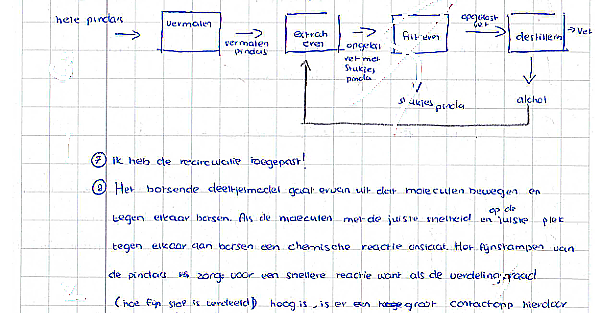 hele pinda's
vermalen
vermalen pindas
extrah eren
opgelost vet met stukjes pinda
filtreren
stukjes pinda
opgelost vet
destilleren
→ Vet
alchol
⑦ Ik heb de recirculatie toegepast!
⑧ Het botsende deeltjesmodel gaat ervan uit dat moleculen bewegen en
tegen elkaar botsen. Als de moleculen met de juiste snelheid en op de juiste plek
tegen elkaar aan botsen een chemische reactie ontstaat. Het fijnstampen van
de pinda's zorgt voor een snellere reactie want als de verdelingsgraad
(hoe fijn stof is verdeeld) hoog is, is er een groot contactopp hierdoor